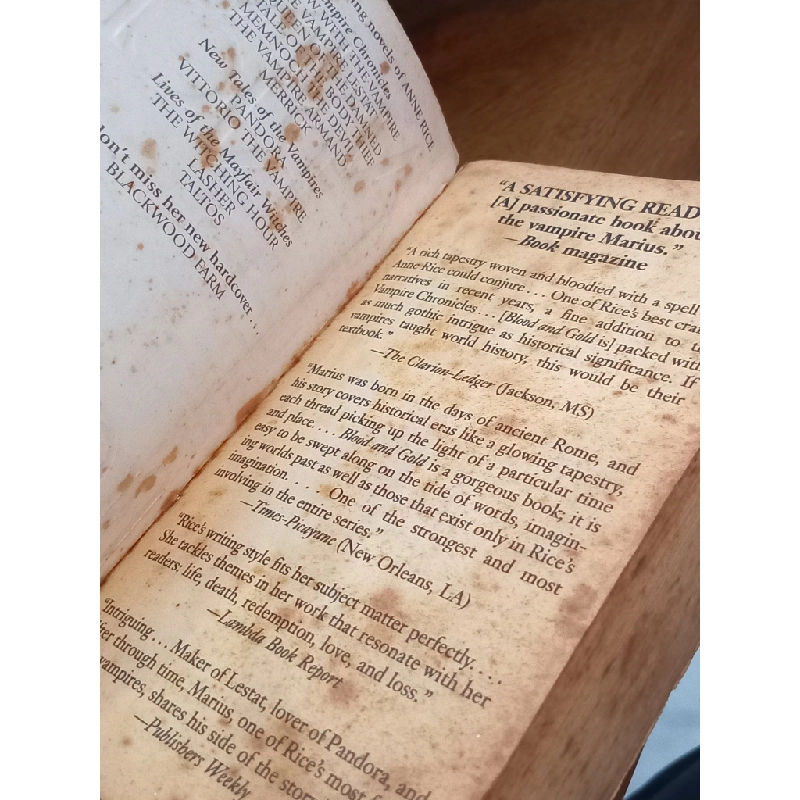 ing novels of ANNE RICE
Vampire Chronicles
W WITH THE VAMPIRE
THE VAMPIRE LESTAT
QUEEN OF THE DAMNED
TALE OF THE BODY THIEF
MEMNOCH THE DEVIL
THE VAMPIRE ARMAND
MERRICK
New Tales of the Vampires
PANDORA
VITTORIO THE VAMPIRE
Lives of the Mayfair Witches
THE WITCHING HOUR
LASHER
TALTOS
on't miss her new hardcover...
BLACKWOOD FARM
"A SATISFYING READ
[A] passionate book abou
the vampire Marius."
—Book magazine
"A rich tapestry woven and bloodied with a spell
Anne Rice could conjure.... One of Rice's best craf
narratives in recent years, a fine addition to t
Vampire Chronicles.... [Blood and Gold is] packed with
as much gothic intrigue as historical significance. If
vampires taught world history, this would be their
textbook."
—The Clarion-Ledger (Jackson, MS)
"Marius was born in the days of ancient Rome, and
his story covers historical eras like a glowing tapestry,
each thread picking up the light of a particular time
and place.... Blood and Gold is a gorgeous book; it is
easy to be swept along on the tide of words, imagin-
ing worlds past as well as those that exist only in Rice's
imagination.... One of the strongest and most
involving in the entire series."
—Times-Picayune (New Orleans, LA)
"Rice's writing style fits her subject matter perfectly....
She tackles themes in her work that resonate with her
readers: life, death, redemption, love, and loss."
—Lambda Book Report
"Intriguing... Maker of Lestat, lover of Pandora, and
through time, Marius, one of Rice's most
vampires, shares his side of the story
—Publishers Weekly